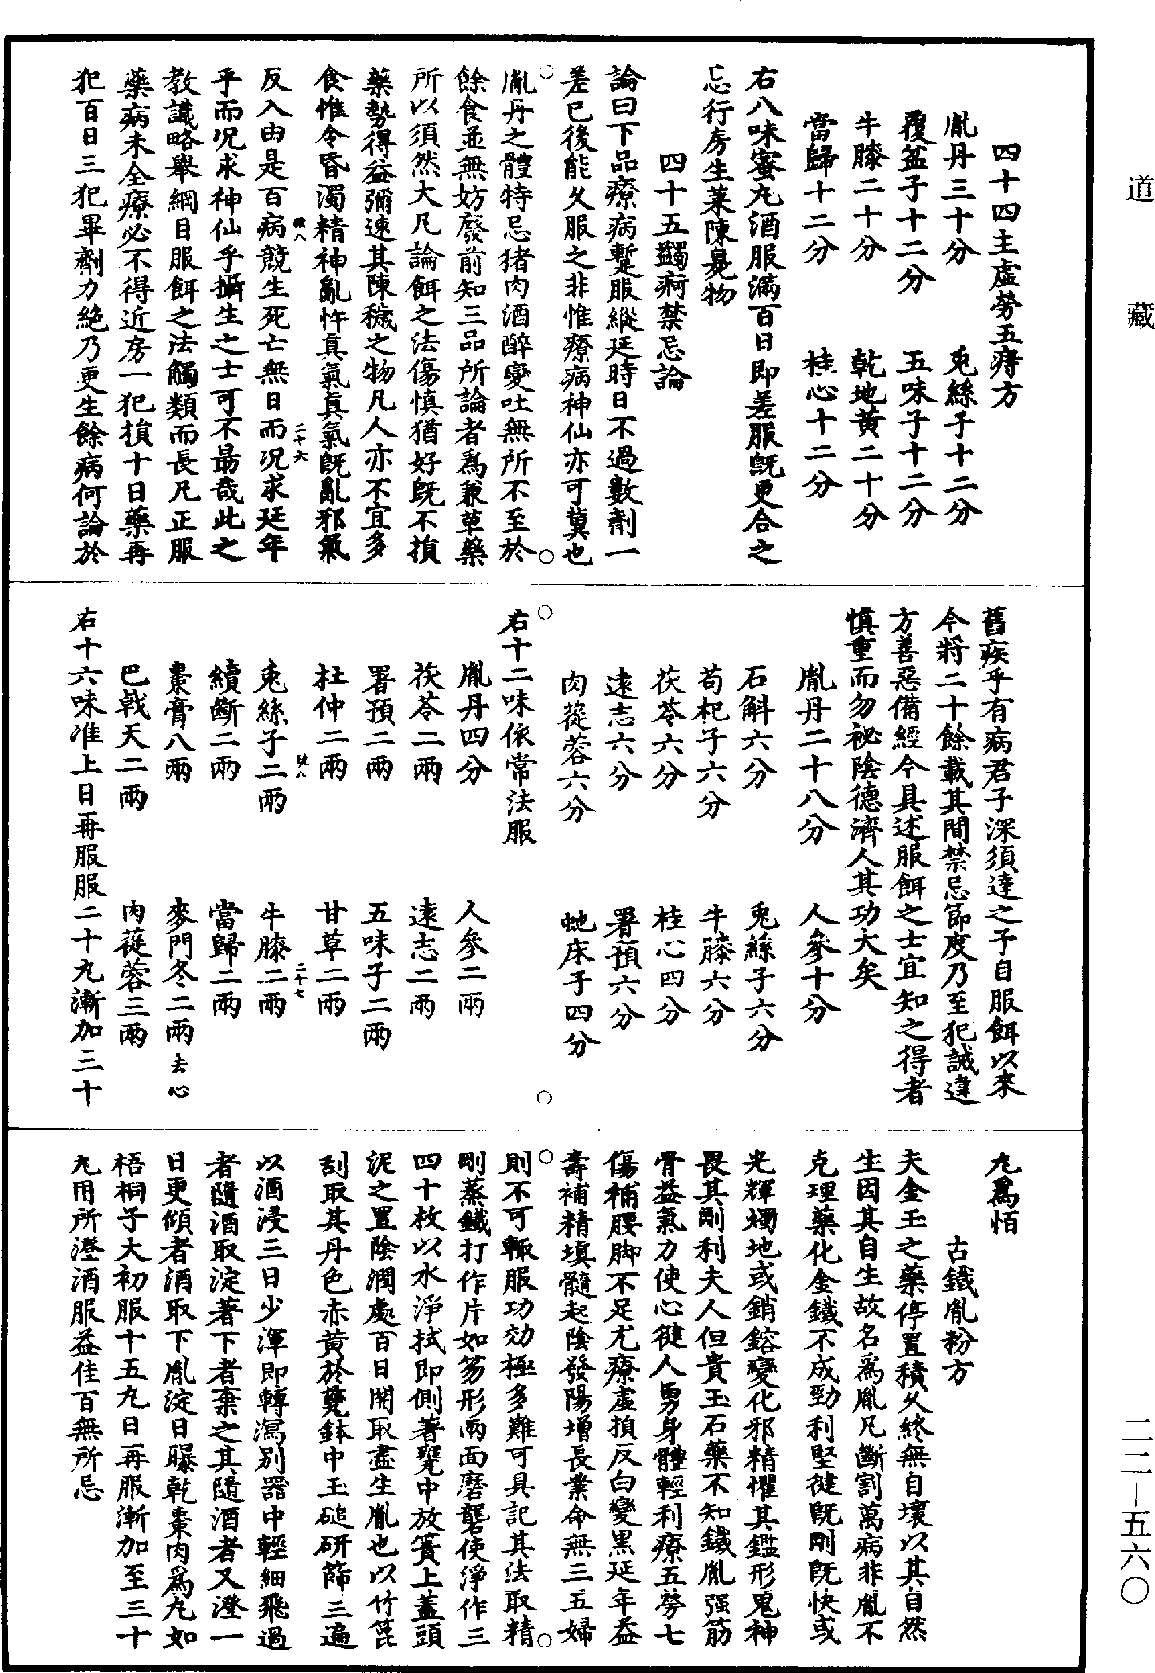 道藏
二二－五六〇
四十四主虛勞五痔方
胤丹三十分　兎絲子十二分
覆盆子十二分　五味子十二分
牛膝二十分　乾地黃二十分
當歸十二分　桂心十二分
右八味蜜丸酒服滿百日即差服既更合之
忌行房生菜陳臭物
四十五蠲痾禁忌論
論曰下品療病蹔服縱延時日不過數劑一
差已後能久服之非惟療病神仙亦可冀也
胤丹之體特忌猪肉酒醉變吐無所不至於
餘食並無妨廢前知三品所論者為兼草藥
所以須然大凡論餌之法傷慎猶好既不損
藥勢得益彌速其陳穢之物凡人亦不宜多
食惟令昏濁精神亂忤真氣真氣既亂邪氣
反入由是百病競生死亡無日而況求延年
乎而況求神仙乎攝生之士可不勗哉此之
教議略舉網目服餌之法觸類而長凡正服
藥病未全療必不得近房一犯損十日藥再
犯百日三犯畢劑力絶乃更生餘病何論於
舊疾乎有病君子深須達之予自服餌以來
今將二十餘載其間禁忌節度乃至犯誡違
方善惡備經今具述服餌之士宜知之得者
慎重而勿祕陰德濟人其功大矣
胤丹二十八分　人參十分
石斛六分　兎絲子六分
苟杞子六分　牛膝六分
茯苓六分　桂心四分
遠志六分　署預六分
肉蓯蓉六分　虵床子四分
右十二味依常法服
胤丹四分　人參二兩
茯苓二兩　遠志二兩
署預二兩　五味子二兩
杜仲二兩　甘草二兩
二十六
兎絲子二兩　牛膝二兩
二十七
續斷二兩　當歸二兩
棗膏八兩　麥門冬二兩去心
巴戟天二兩　肉蓯蓉三兩
右十六味准上日再服服二十丸漸加三十
丸為恒
古鐵胤粉方
夫金玉之藥停置積久終無自壞以其自然
生因其自生故名為胤凡斷割萬病非胤不
克理藥化金鐵不成勁利堅徤既剛既快或
光輝燭地或銷鎔變化邪精懼其鑑形鬼神
畏其剛利夫人但貴玉石藥不知鐵胤强筋
骨益氣力使心徤人勇身體輕利療五勞七
傷補腰脚不足尤療虛損反白變黑延年益
壽補精填髓起陰發陽增長業命無三五婦
則不可輙服功効極多難可具記其法取精
剛蒸鐵打作片如笏形兩面磨礱使淨作三
四十枚以水淨拭即側著甕中放簀上蓋頭
泥之置陰潤處百日開取盡生胤也以竹篦
刮取其丹色赤黃於甆鉢中玉槌研篩三遍
以酒浸三日少渾即轉瀉別器中輕細飛過
者隨酒取淀著下者棄之其隨酒者又澄一
日更傾者酒取下胤淀日曝乾棗肉為丸如
梧桐子大初服十五丸日再服漸加至三十
丸用所澄酒服益佳百無所忌